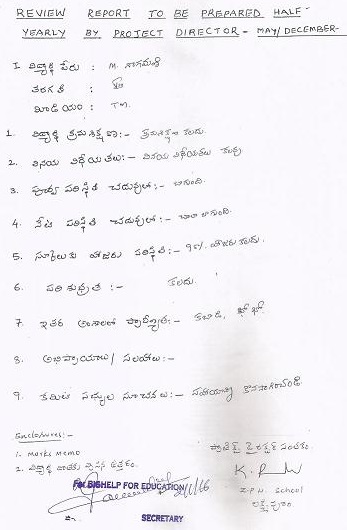 REVIEW REPORT TO BE PREPARED HALF-
YEARLY BY PROJECT DIRECTOR - MAY/DECEMBER-
I విద్యార్థి పేరు : M. నాగమణి
తరగతి :
మీడియం : T.M.
1. విద్యార్థి క్రమశిక్షణ :- క్రమశిక్షణ కలదు.
2. వినయ విధేయతలు:- వినయ విధేయతలు కలవు
3. పూర్వ పరిస్థితి చదువులో:- బాగుంది.
4. నేటి పరిస్థితి చదువులో:- చాలా బాగుంది.
5. స్కూలుకు హాజరు పరిస్థితి:- 95% హాజరు కలదు.
6. పరిశుభ్రత :- కలదు.
7. ఇతర అంశాలలో ప్రావీణ్యత:- కబాడి, ఖోఖో
8. అభిప్రాయాలు/ సలహాలు:-
9. కమిటి సభ్యుల సూచనలు:- సహాయాన్ని కొనసాగించండి.
Enclosures:-
1. Marks Memo
2. విద్యార్థి
ప్రాజెక్ట్ డైరెక్టర్ సంతకం.
For BIGHELP FOR EDUCATION
Z.P.H. School
SECRETARY